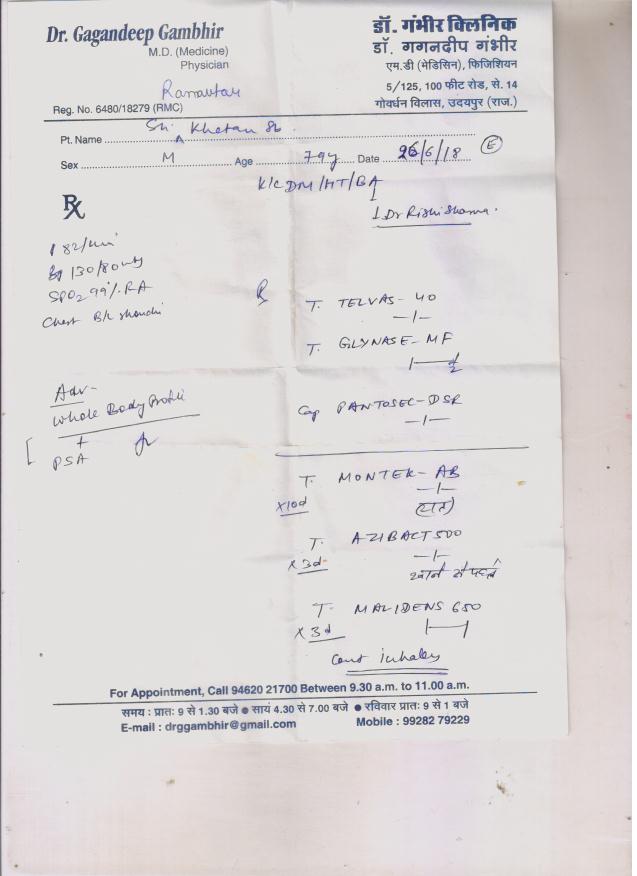 Dr. Gagandeep Gambhir
M.D. (Medicine)
Physician
Reg. No. 6480/18279 (RMC)
डॉ. गंभीर क्लिनिक
डॉ. गगनदीप गंभीर
एम.डी (मेडिसिन), फिजिशियन
5/125, 100 फीट रोड, से. 14
गोवर्धन विलास, उदयपुर (राज.)
Pt. Name Sh. Khetan
Sex M Age 79y Date 26/6/18 E
K/C DM/HT/BA
Dr Rishi Sharma.
Rx
82/min
Bp 130/80
SPO2 99% RA
Chest B/L
T. TELVAS- 40
-1-
T. GLYNASE- MF
1 1/2
Adv-
Whole Body Profile
+
PSA
Cap PANTOSEC-DSR
-1-
T. MONTEK- AB
-1-
x10d
T. AZIBACT 500
-1-
x3d
खाने से पहले
T. MALIDENS 650
x3d
Cont inhaler
For Appointment, Call 94620 21700 Between 9.30 a.m. to 11.00 a.m.
समय : प्रातः 9 से 1.30 बजे ● सायं 4.30 से 7.00 बजे ● रविवार प्रातः 9 से 1 बजे
E-mail : drggambhir@gmail.com Mobile : 99282 79229